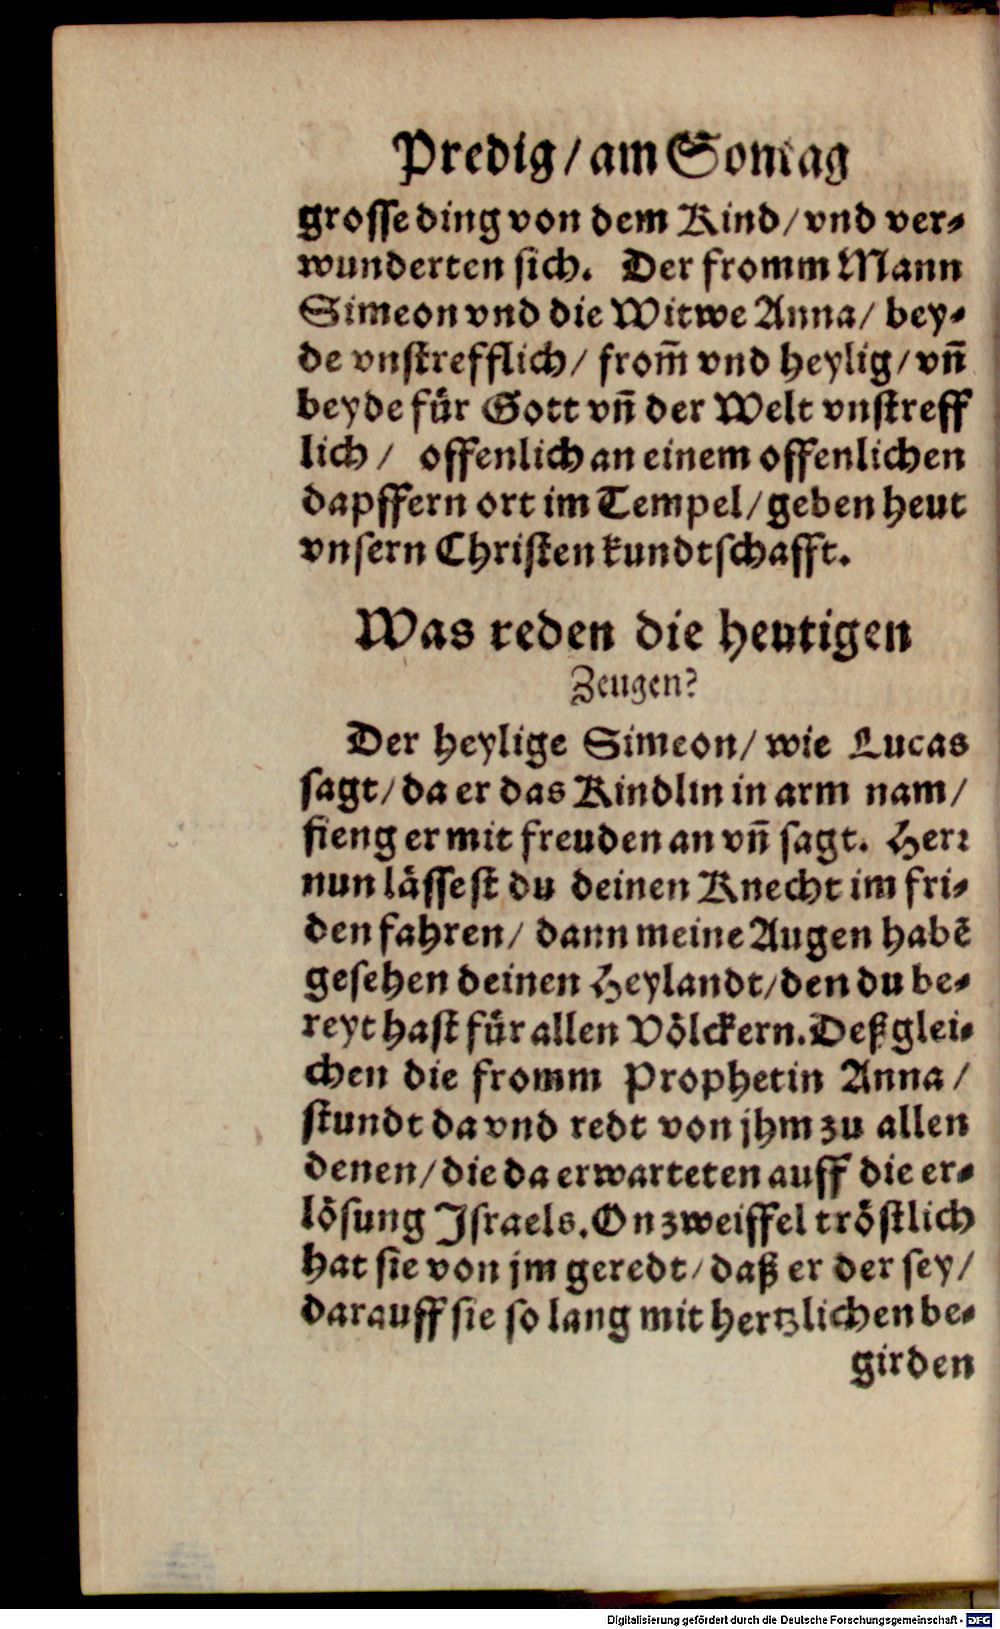 Predig / am Sontag
grosse ding von dem Kind / vnd ver-
wunderten sich. Der fromm Mann
Simeon vnd die Witwe Anna / bey-
de vnstrefflich / from̄ vnd heylig / vn̄
beyde für Gott vn̄ der Welt vnstreff
lich / offenlich an einem offenlichen
dapffern ort im Tempel / geben heut
vnsern Christen kundtschafft.
Was reden die heutigen
Zeugen?
Der heylige Simeon / wie Lucas
sagt / da er das Kindlin in arm nam /
fieng er mit freuden an vn̄ sagt. Herr
nun lässest du deinen Knecht im fri-
den fahren / dann meine Augen habē
gesehen deinen Heylandt / den du be-
reyt hast für allen Völckern. Deßglei-
chen die fromm Prophetin Anna /
stundt da vnd redt von jhm zu allen
denen / die da erwarteten auff die er-
lösung Israels. On zweiffel tröstlich
hat sie von jm geredt / daß er der sey /
darauff sie so lang mit hertzlichen be-
girden
Digitalisierung gefördert durch die Deutsche Forschungsgemeinschaft - DFG